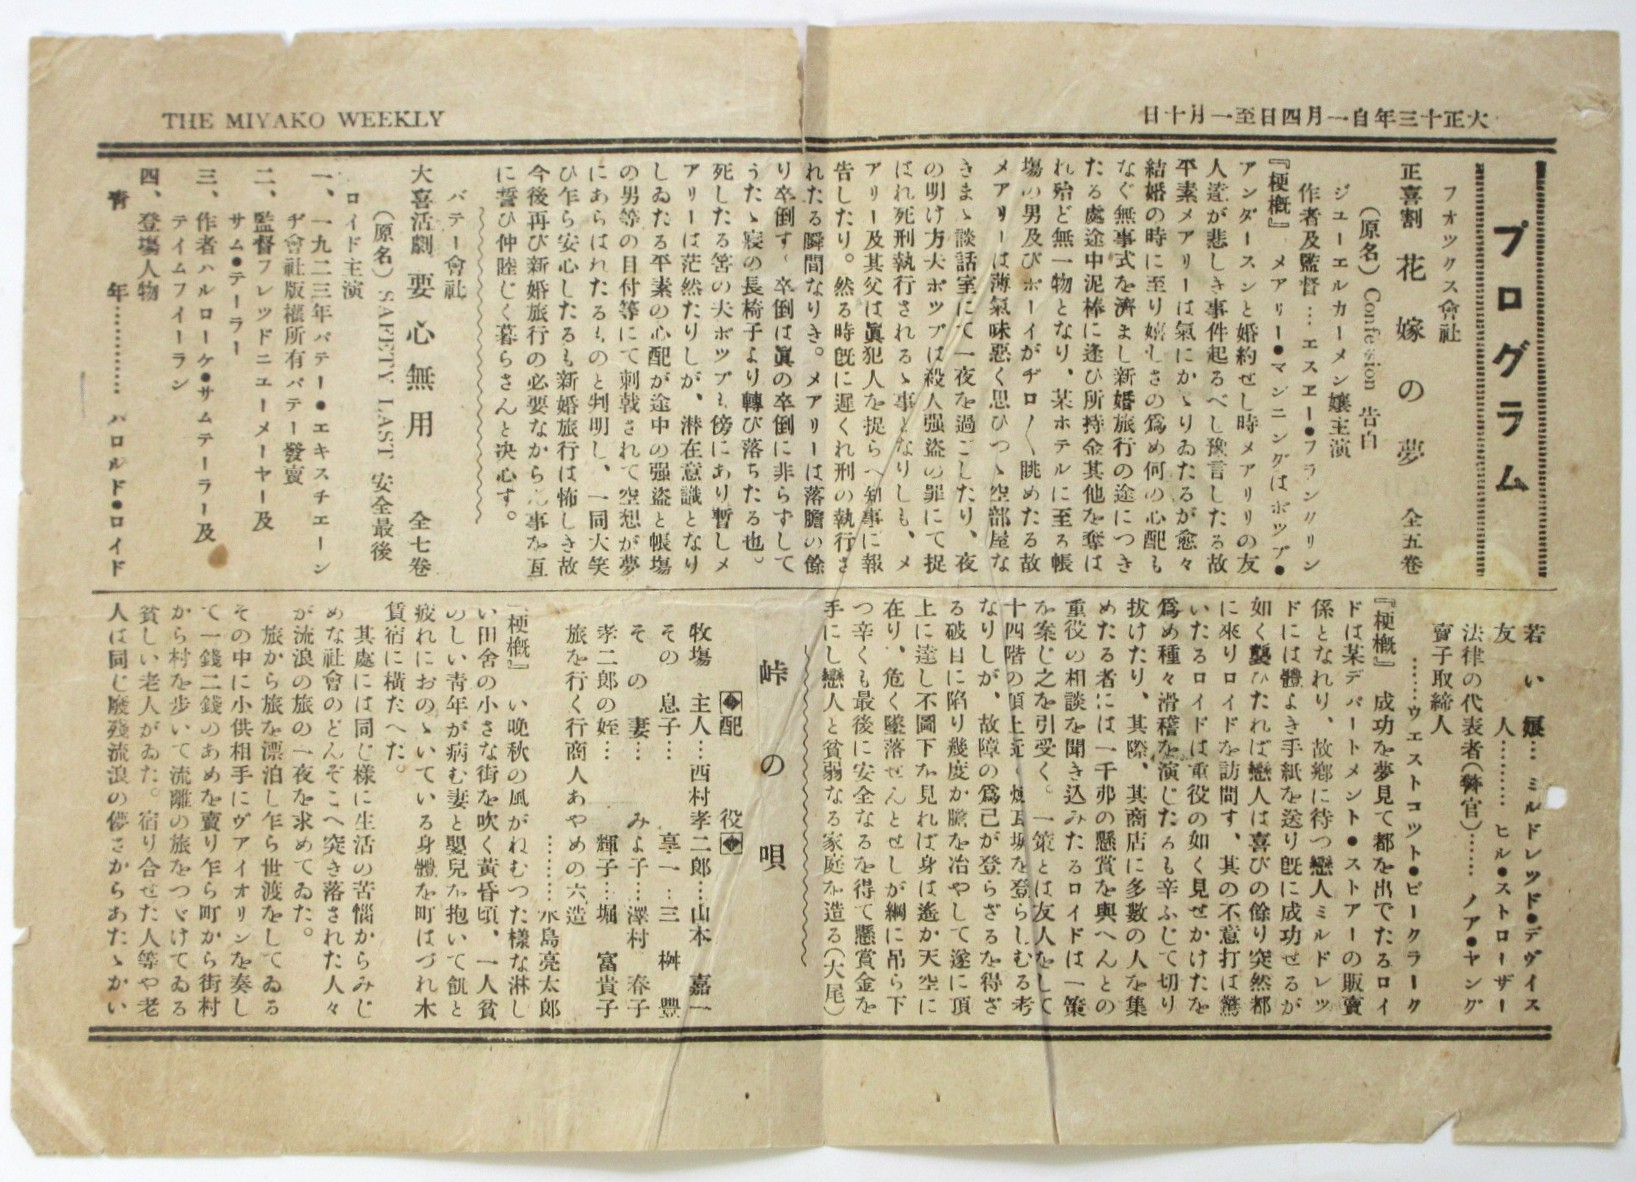 THE MIYAKO WEEKLY
大正十三年自一月四日至一月十日
プログラム
フオツクス會社
正喜割 花嫁の夢 全五卷
(原名) Confession 告白
ジユーエルカーメン孃主演
作者及監督…エスエー●フランクリン
『梗概』 メアリー●マンニングはボツブ●
アンダースンと婚約せし時メアリリの友
人達が悲しき事件起るべし豫言したる故
平素メアリーは氣にかゝりゐたるが愈々
結婚の時に至り嬉しさの爲め何の心配も
なぐ無事式を濟まし新婚旅行の途につき
たる處途中泥棒に逢ひ所持金其他を奪は
れ殆ど無一物となり、某ホテルに至る帳
塲の男及びボーイがヂロ〱眺めたる故
メアリーは薄氣味惡く思ひつゝ空部屋な
きまゝ談話室にて一夜を過ごしたり、夜
の明け方夫ボツブは殺人强盜の罪にて捉
はれ死刑執行されるゝ事となりしも、メ
アリー及其父は眞犯人を捉らへ知事に報
告したり。然る時旣に遲くれ刑の執行さ
れたる瞬間なりき。メアリーは落膽の餘
り卒倒す、卒倒は眞の卒倒に非らずして
うたゝ寢の長椅子より轉び落ちたる也。
死したる筈の夫ボツブも傍にあり暫しメ
アリーは茫然たりしが、潜在意識となり
しゐたる平素の心配が途中の强盜と帳塲
の男等の目付等にて刺戟されて空想が夢
にあらはれたるものと判明し、一同大笑
ひ乍ら安心したるも新婚旅行は怖しき故
今後再び新婚旅行の必要なから事を互
に誓ひ仲睦じく暮らさんと决心す。
パテー會社
大喜活劇 要心無用 全七卷
(原名) SAFETY LAST 安全最後
ロイド主演
一、一九二三年パテー●エキスチエーン
ヂ會社版權所有パテー發賣
二、監督フレツドニユーメーヤー及
サム●テーラー
三、作者ハルローケ●サムテーラー及
テイムフイーラン
四、登塲人物
靑年………… ハロルド●ロイド
若い娘… ミルドレツド●デヴイス
友人……… ヒル●ストローザー
法律の代表者(警官)…… ノア●ヤング
賣子取締人
……ウエストコツト●ピークラーク
『梗槪』 成功を夢見て都を出でたるロイ
ドは某デパートメント●ストアーの販賣
係となれり、故鄕に待つ戀人ミルドレツ
ドには體よき手紙を送り旣に成功せるが
如く襲ひたれば戀人は喜びの餘り突然都
に來りロイドを訪問す、其の不意打は驚
いたるロイドは重役の如く見せかけたを
爲め種々滑稽を演じたるも辛ふじて切り
拔けたり、其際、其商店に多數の人を集
めたる者には一千弗の懸賞を與へんとの
重役の相談を聞き込みたるロイドは一策
を案じ之を引受く。一策とは友人をして
十四階の頂上迄煉瓦坂を登らしむる考
なりしが、故障の爲己が登らざるを得ざ
る破目に陷り幾度か膽を冶やして遂に頂
上に達し不圖下を見れば身は遙か天空に
在り、危く墜落せんとせしが綱に吊ら下
つ辛くも最後に安全なるを得て懸賞金を
手にし戀人と貧弱なる家庭を造る(大尾)
峠の唄
配役
牧塲主人…西村孝二郎…山本嘉一
その息子… 享一…三桝豐
その妻… みよ子…澤村春子
孝二郎の姪… 輝子…堀富貴子
旅を行く行商人あやめの六造
………水島亮太郎
『梗槪』 い晚秋の風がねむつた樣な淋し
い田舍の小さな街を吹く黃昏頃、一人貧
のしい靑年が病む妻と嬰兒を抱いて飢と
疲れにおのゝいている身體を町はづれ木
賃宿に橫たへた。
其處には同じ樣に生活の苦惱からみじ
めな社會のどんぞこへ突き落された人々
が流浪の旅の一夜を求めてゐた。
旅から旅を漂泊し乍ら世渡をしてゐる
その中に小供相手にヴアイオリンを奏し
て一錢二錢のあめを賣り乍ら町から街村
から村を步いて流離の旅をつゞけてゐる
貧しい老人がゐた。宿り合せた人等や老
人は同じ廢殘流浪の儚さからあたゝかい